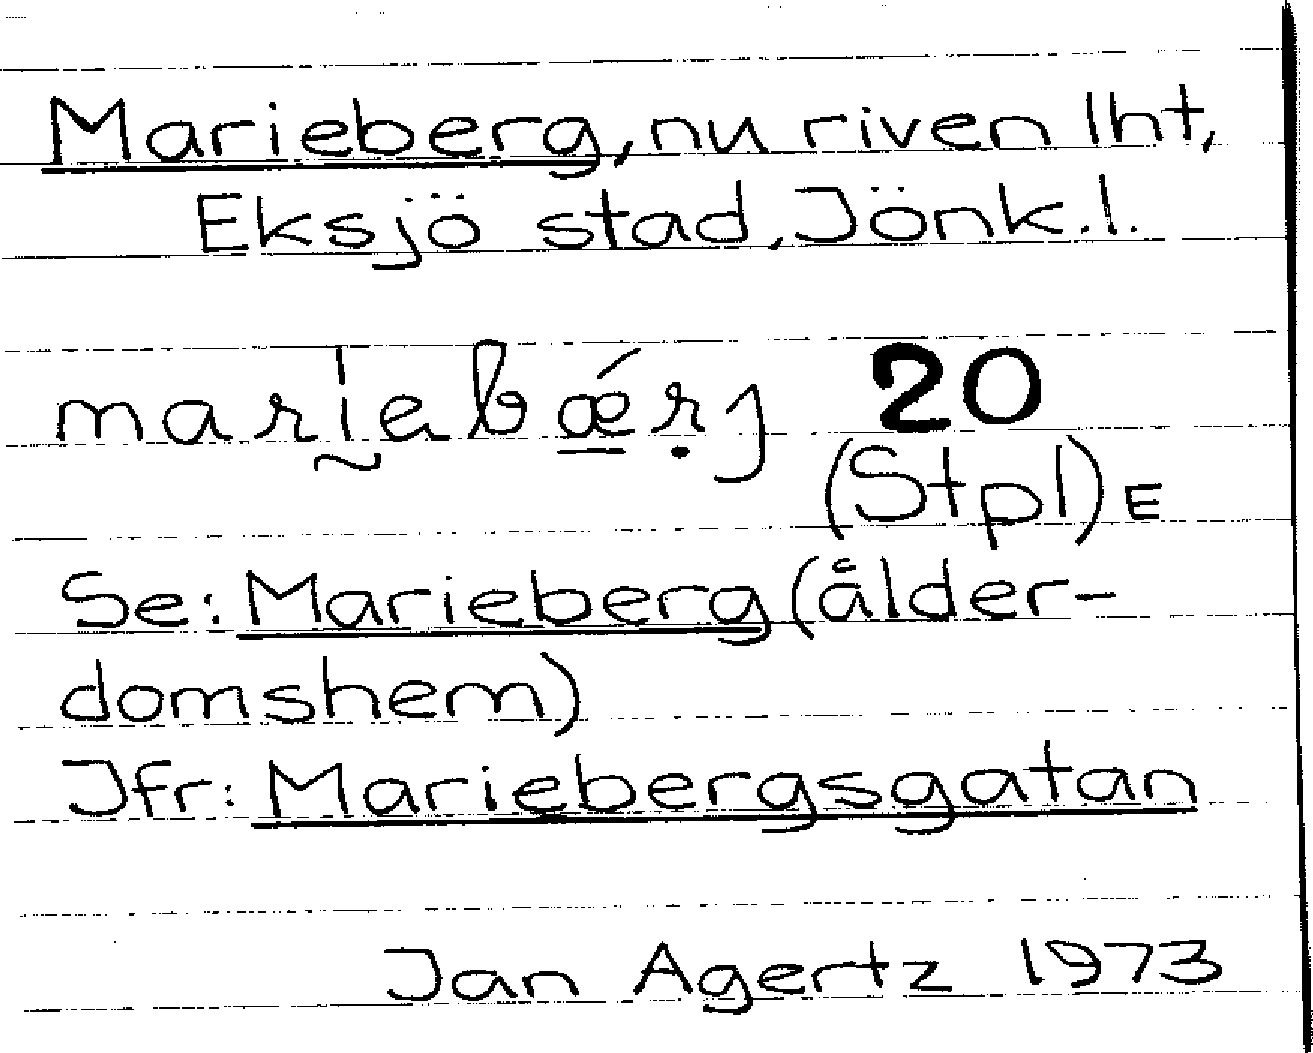 Marieberg, nu riven lht,
Eksjö stad, Jönk.l.
marıebǽrj 20
(Stpl) E
Se: Marieberg (ålder-
domshem)
Jfr: Mariebergsgatan
Jan Agertz 1973